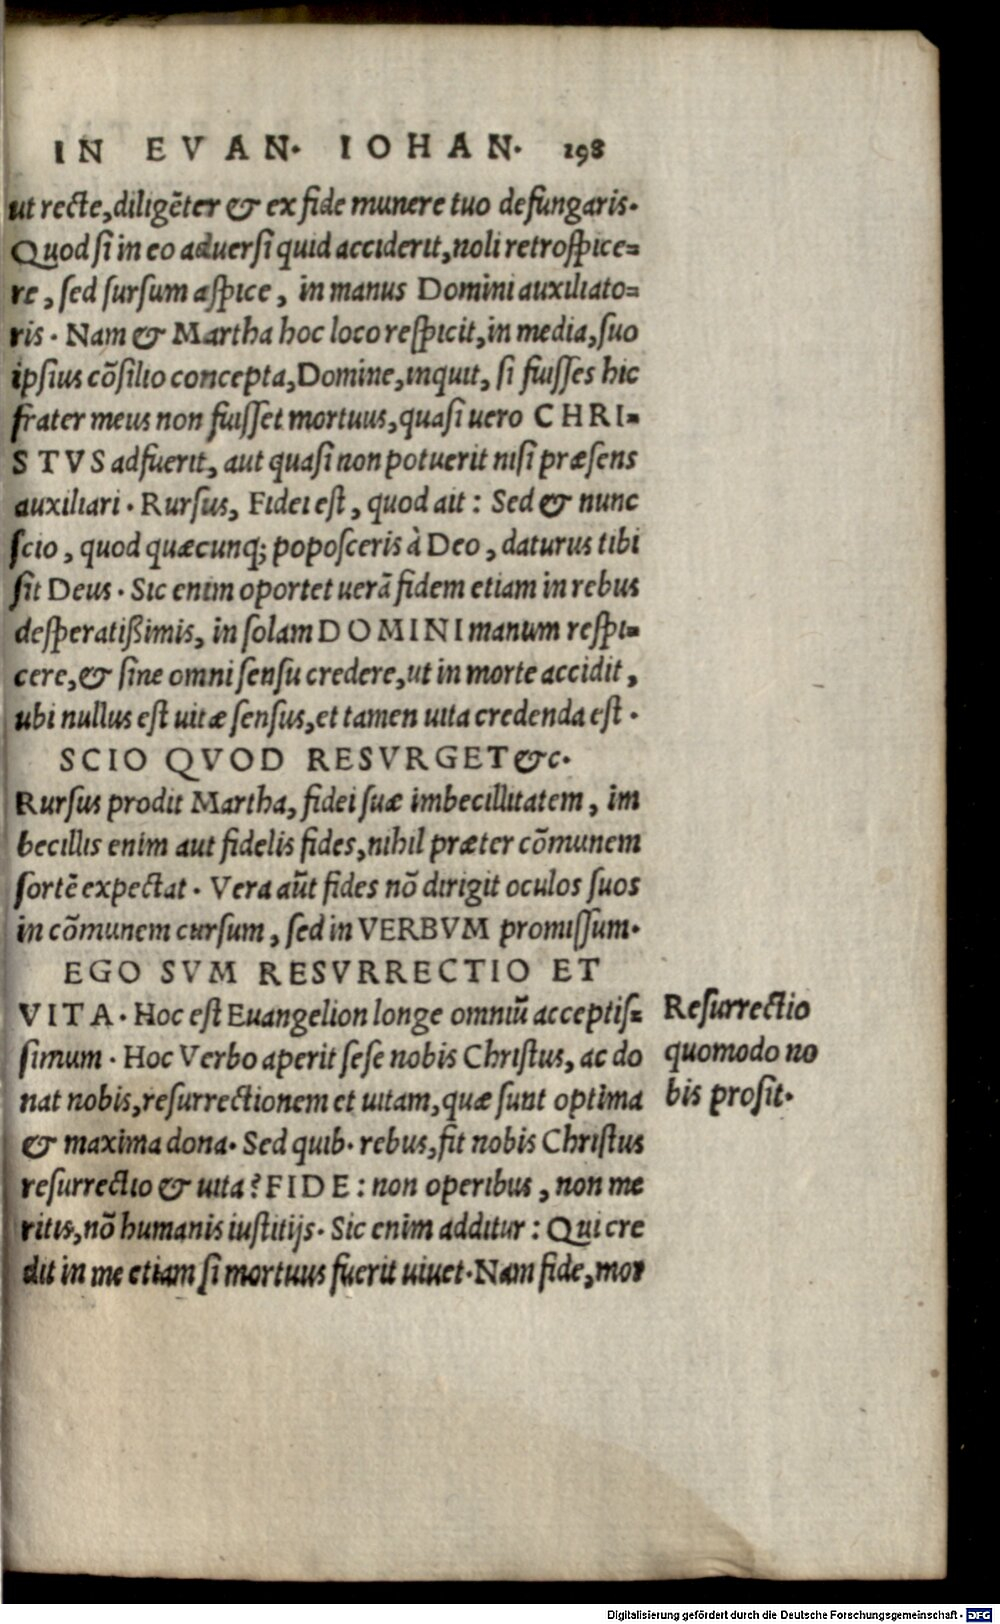 IN EVAN. IOHAN. 198
ut recte, diligēter & ex fide munere tuo defungaris.
Quod si in eo aduersi quid acciderit, noli retrospice=
re, sed sursum aspice, in manus Domini auxiliato=
ris. Nam & Martha hoc loco respicit, in media, suo
ipsius cōsilio concepta, Domine, inquit, si fuisses hic
frater meus non fuisset mortuus, quasi uero CHRI=
STVS adfuerit, aut quasi non potuerit nisi præsens
auxiliari. Rursus, Fidei est, quod ait: Sed & nunc
scio, quod quæcunq; poposceris à Deo, daturus tibi
sit Deus. Sic enim oportet uerā fidem etiam in rebus
desperatißimis, in solam DOMINI manum respi=
cere, & sine omni sensu credere, ut in morte accidit,
ubi nullus est uitæ sensus, et tamen uita credenda est.
SCIO QVOD RESVRGET &c.
Rursus prodit Martha, fidei suæ imbecillitatem, im
becillis enim aut fidelis fides, nihil præter cōmunem
sortē expectat. Vera aūt fides nō dirigit oculos suos
in cōmunem cursum, sed in VERBVM promissum.
EGO SVM RESVRRECTIO ET
VITA. Hoc est Euangelion longe omniū acceptis=
simum. Hoc Verbo aperit sese nobis Christus, ac do
nat nobis, resurrectionem et uitam, quæ sunt optima
& maxima dona. Sed quib. rebus, fit nobis Christus
resurrectio & uita? FIDE: non operibus, non me
ritis, nō humanis iustitijs. Sic enim additur: Qui cre
dit in me etiam si mortuus fuerit uiuet. Nam fide, mor
Resurrectio
quomodo no
bis prosit.
Digitalisierung gefördert durch die Deutsche Forschungsgemeinschaft - DFG